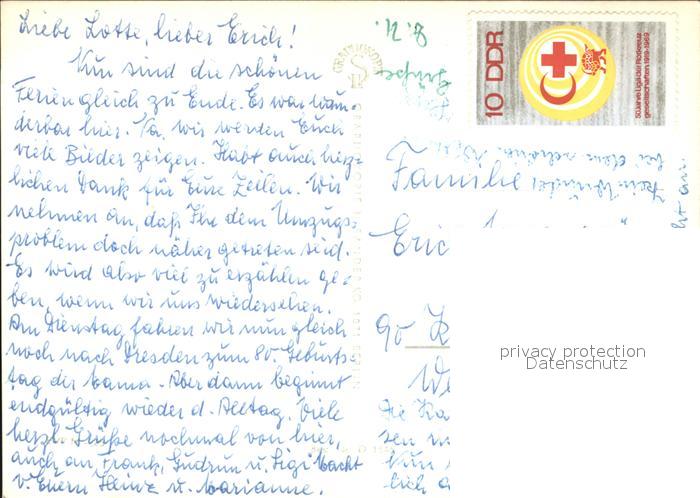 Liebe Lotte, lieber Erich!
Nun sind die schönen
Ferien gleich zu Ende. Es war wun-
derbar hier. Na, wir werden Euch
viele Bilder zeigen. Habt auch herz-
lichen Dank für Eure Zeilen. Wir
nehmen an, daß Ihr dem Umzugs-
problem doch näher getreten seid.
Es wird also viel zu erzählen ge-
ben, wenn wir uns wiedersehen.
Am Dienstag fahren wir nun gleich
noch nach Dresden zum 80. Geburts-
tag der Mama. Aber dann beginnt
endgültig wieder d. Alltag. Viele
herzl. Grüße nochmal von hier,
auch an Frank, Gudrun u. Sigi
v. Euern Heinz u. Marianne.
10 DDR
50 Jahre Liga der Rotkreuz-
gesellschaften 1919-1969
Familie
Eric
90
Die
sen
Nun
lich
privacy protection
Datenschutz